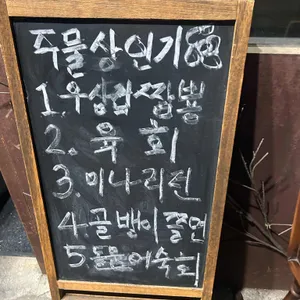 주물상인기
1. 우삼겹짬뽕
2. 육회
3. 미나리전
4. 골뱅이쫄면
5. 돌문어숙회